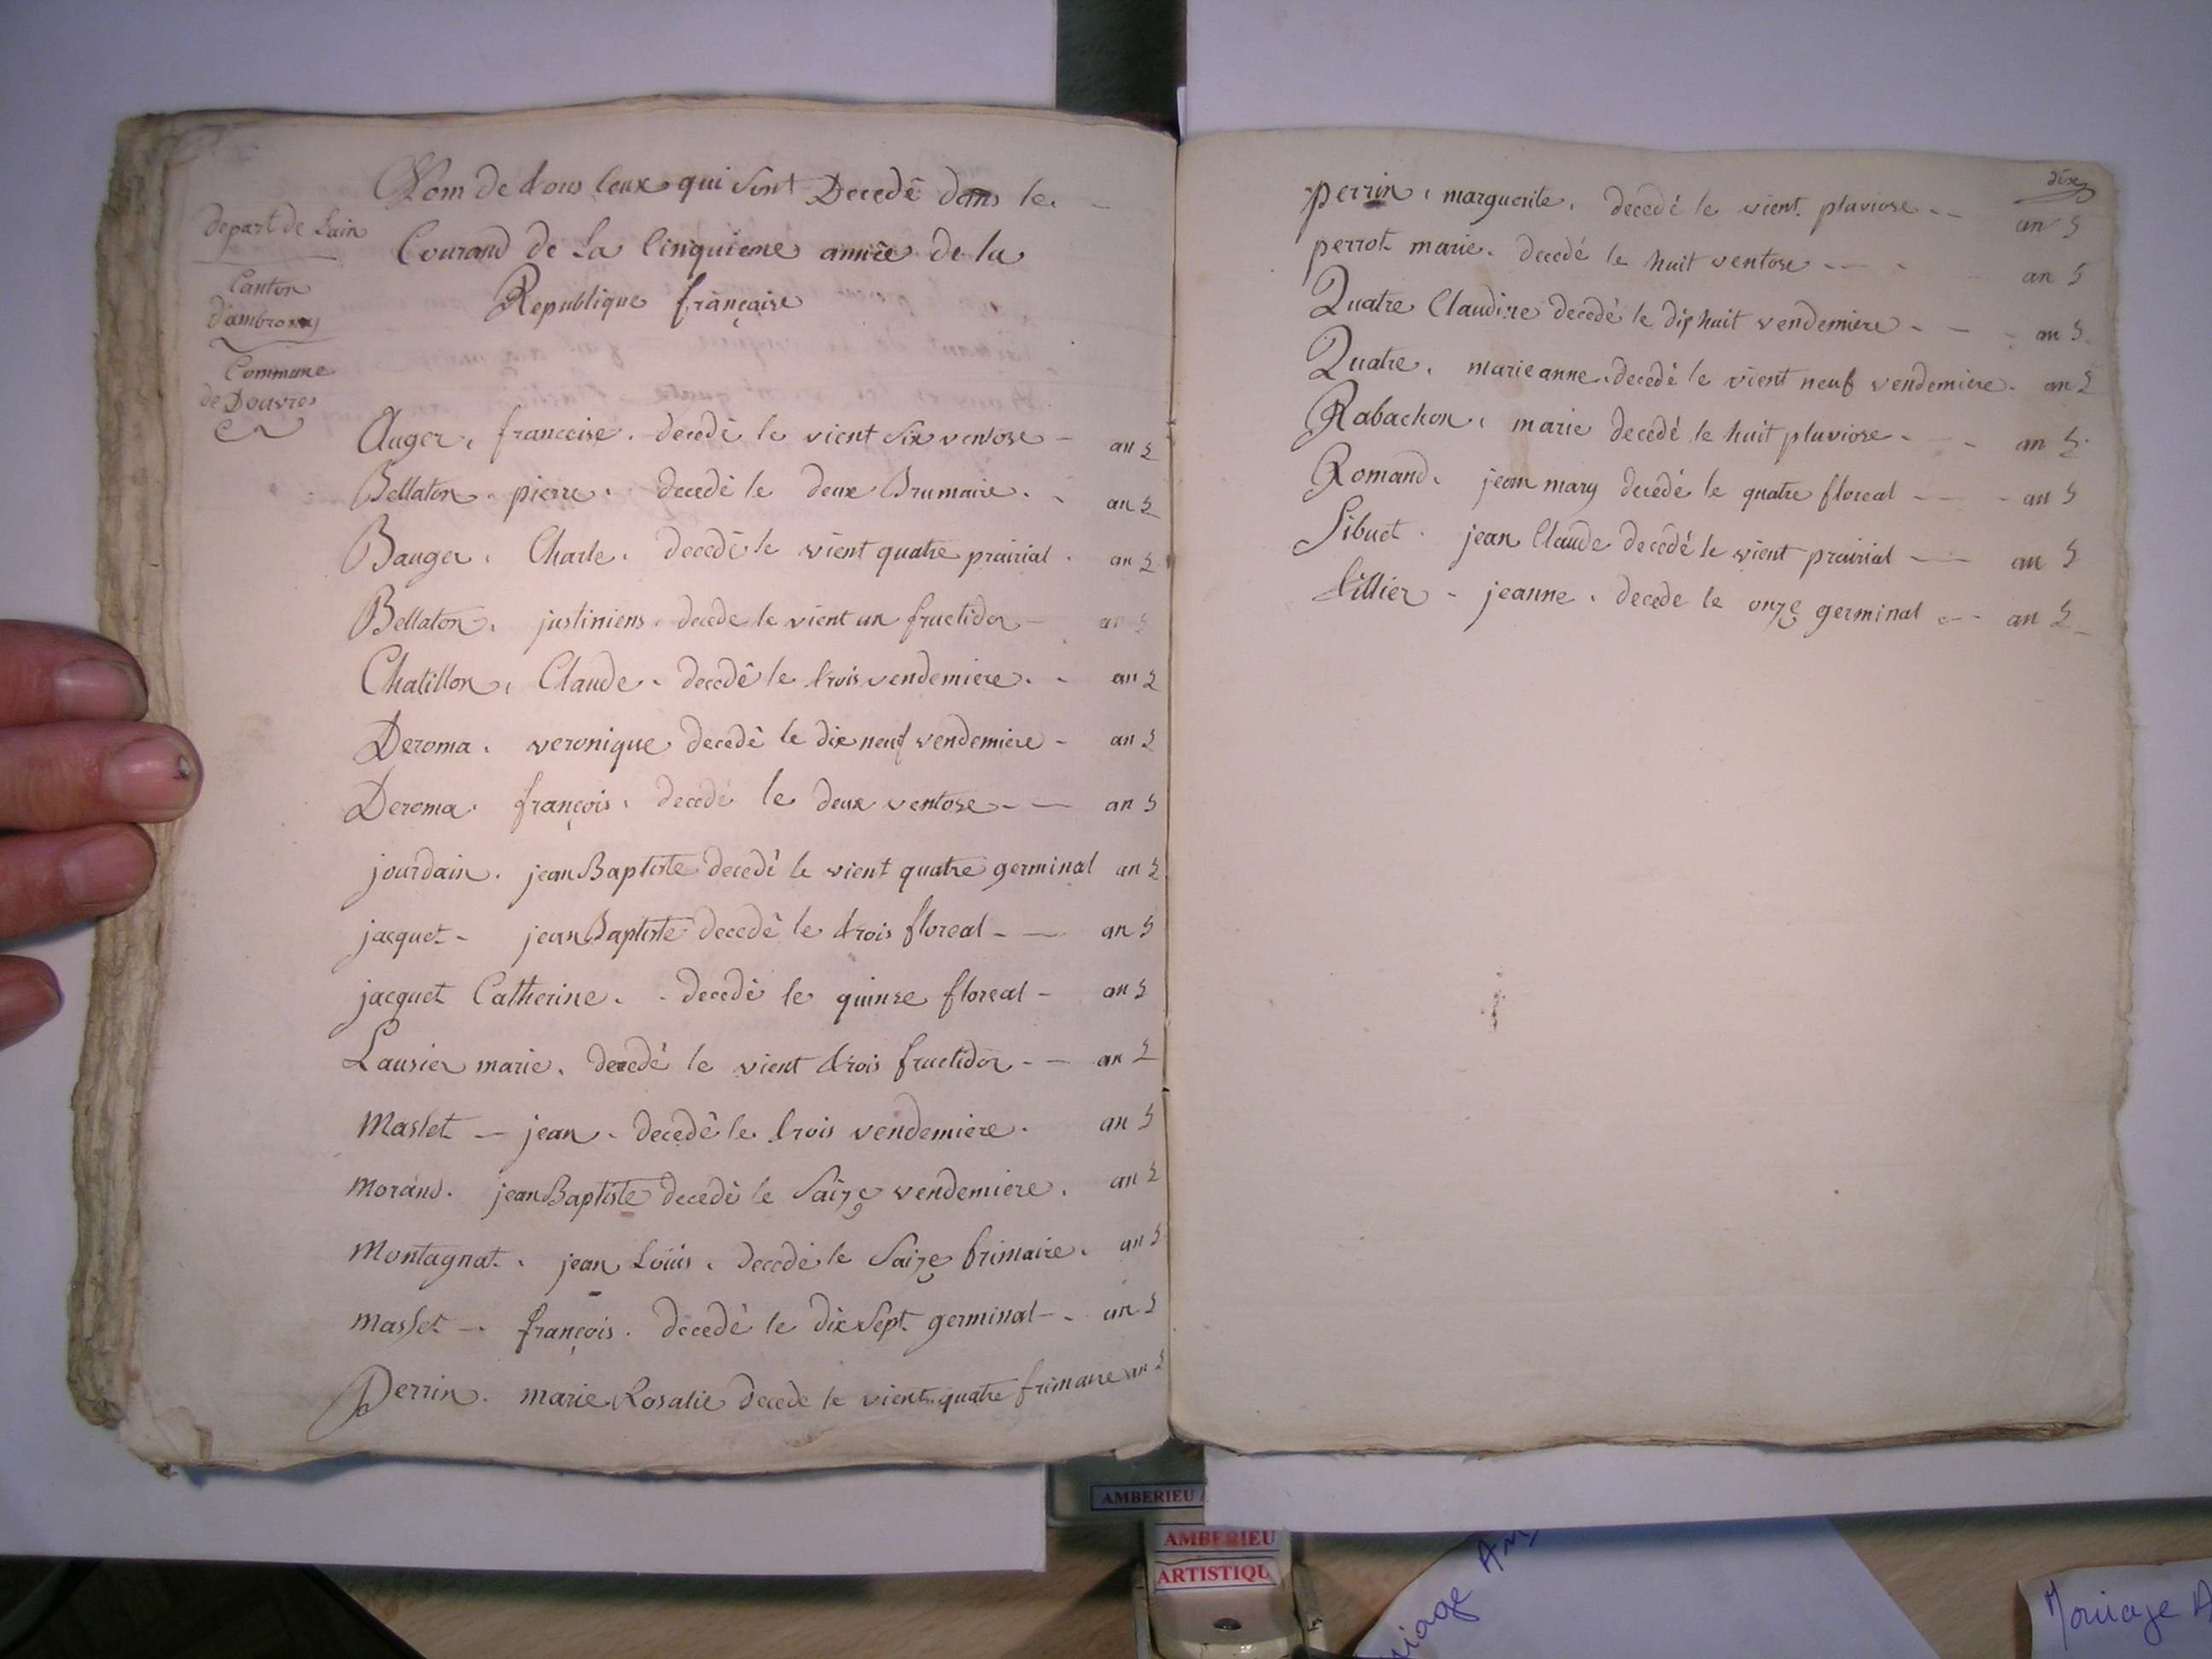 Nom de tous Ceux qui sont Decedé dans le
Courand de La Cinquieme année de la
Republique française
depart de Lain
Canton
d'ambronay
Commune
de Douvres
Auger, francoise. decedé le vient six ventose - an 5
Bellaton. pierre. decedé le deux Brumaire. - an 5
Bauger. Charle. decedé le vient quatre prairial. an 5
Bellaton. justiniens. decede le vient un fructidor - an 5
Chatillon, Claude. decedé le trois vendemiere. - an 5
Deroma. veronique decedé le dix neuf vendemiere - an 5
Deroma. françois. decedé le deux ventose - - an 5
jourdain. jean Baptiste decedé le vient quatre germinal an 5
jacquet - jean Baptiste decedé le trois floreal - - an 5
jacquet Catherine. - decedé le quinse floreal - an 5
Lausier marie. decedé le vient trois fructidor - - an 5
Maslet - jean. decedé le trois vendemiere. an 5
Morand. jean Baptiste decedé le Saize vendemiere. an 5
Montagnat. jean Loüis. decedé le Saize frimaire. an 5
Masset - françois. decedé le dix sept germinal - an 5
Perrin. marie Rosalie decede le vient quatre frimaire an 5
dixe
perrin, marguerite. decedé le vient. pluviose - - an 5
perrot marie. decedé le huit ventose - - an 5
Quatre Claudine decedé le dix huit vendemiere - - an 5
Quatre. marieanne. decedé le vient neuf vendemiere. an 5
Rabachon. marie decedé le huit pluviose - - an 5
Romand. jean mary decedé le quatre floreal - - an 5
Sibuet. jean Claude decedé le vient prairial - - an 5
tillier - jeanne. decede le onze germinal - - an 5
AMBERIEU
AMBERIEU
ARTISTIQU
Mariage A